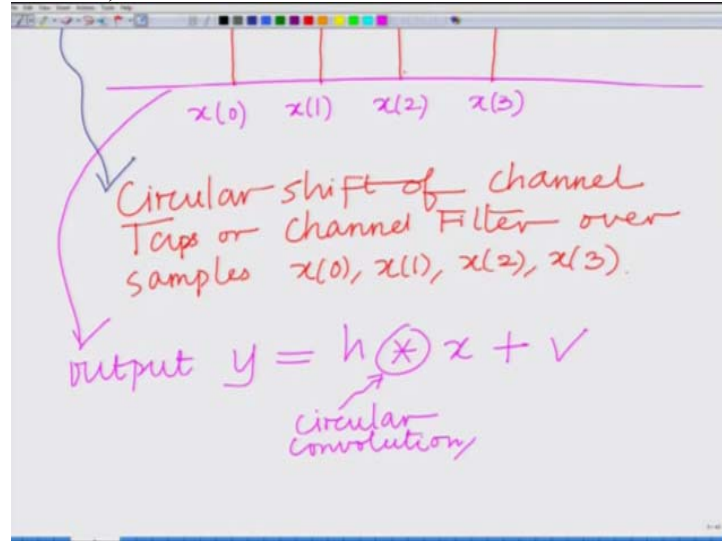 x(0) x(1) x(2) x(3)
Circular shift of channel
Taps or Channel Filter over
samples x(0), x(1), x(2), x(3).
output y = h ⊛ x + v
circular
convolution,